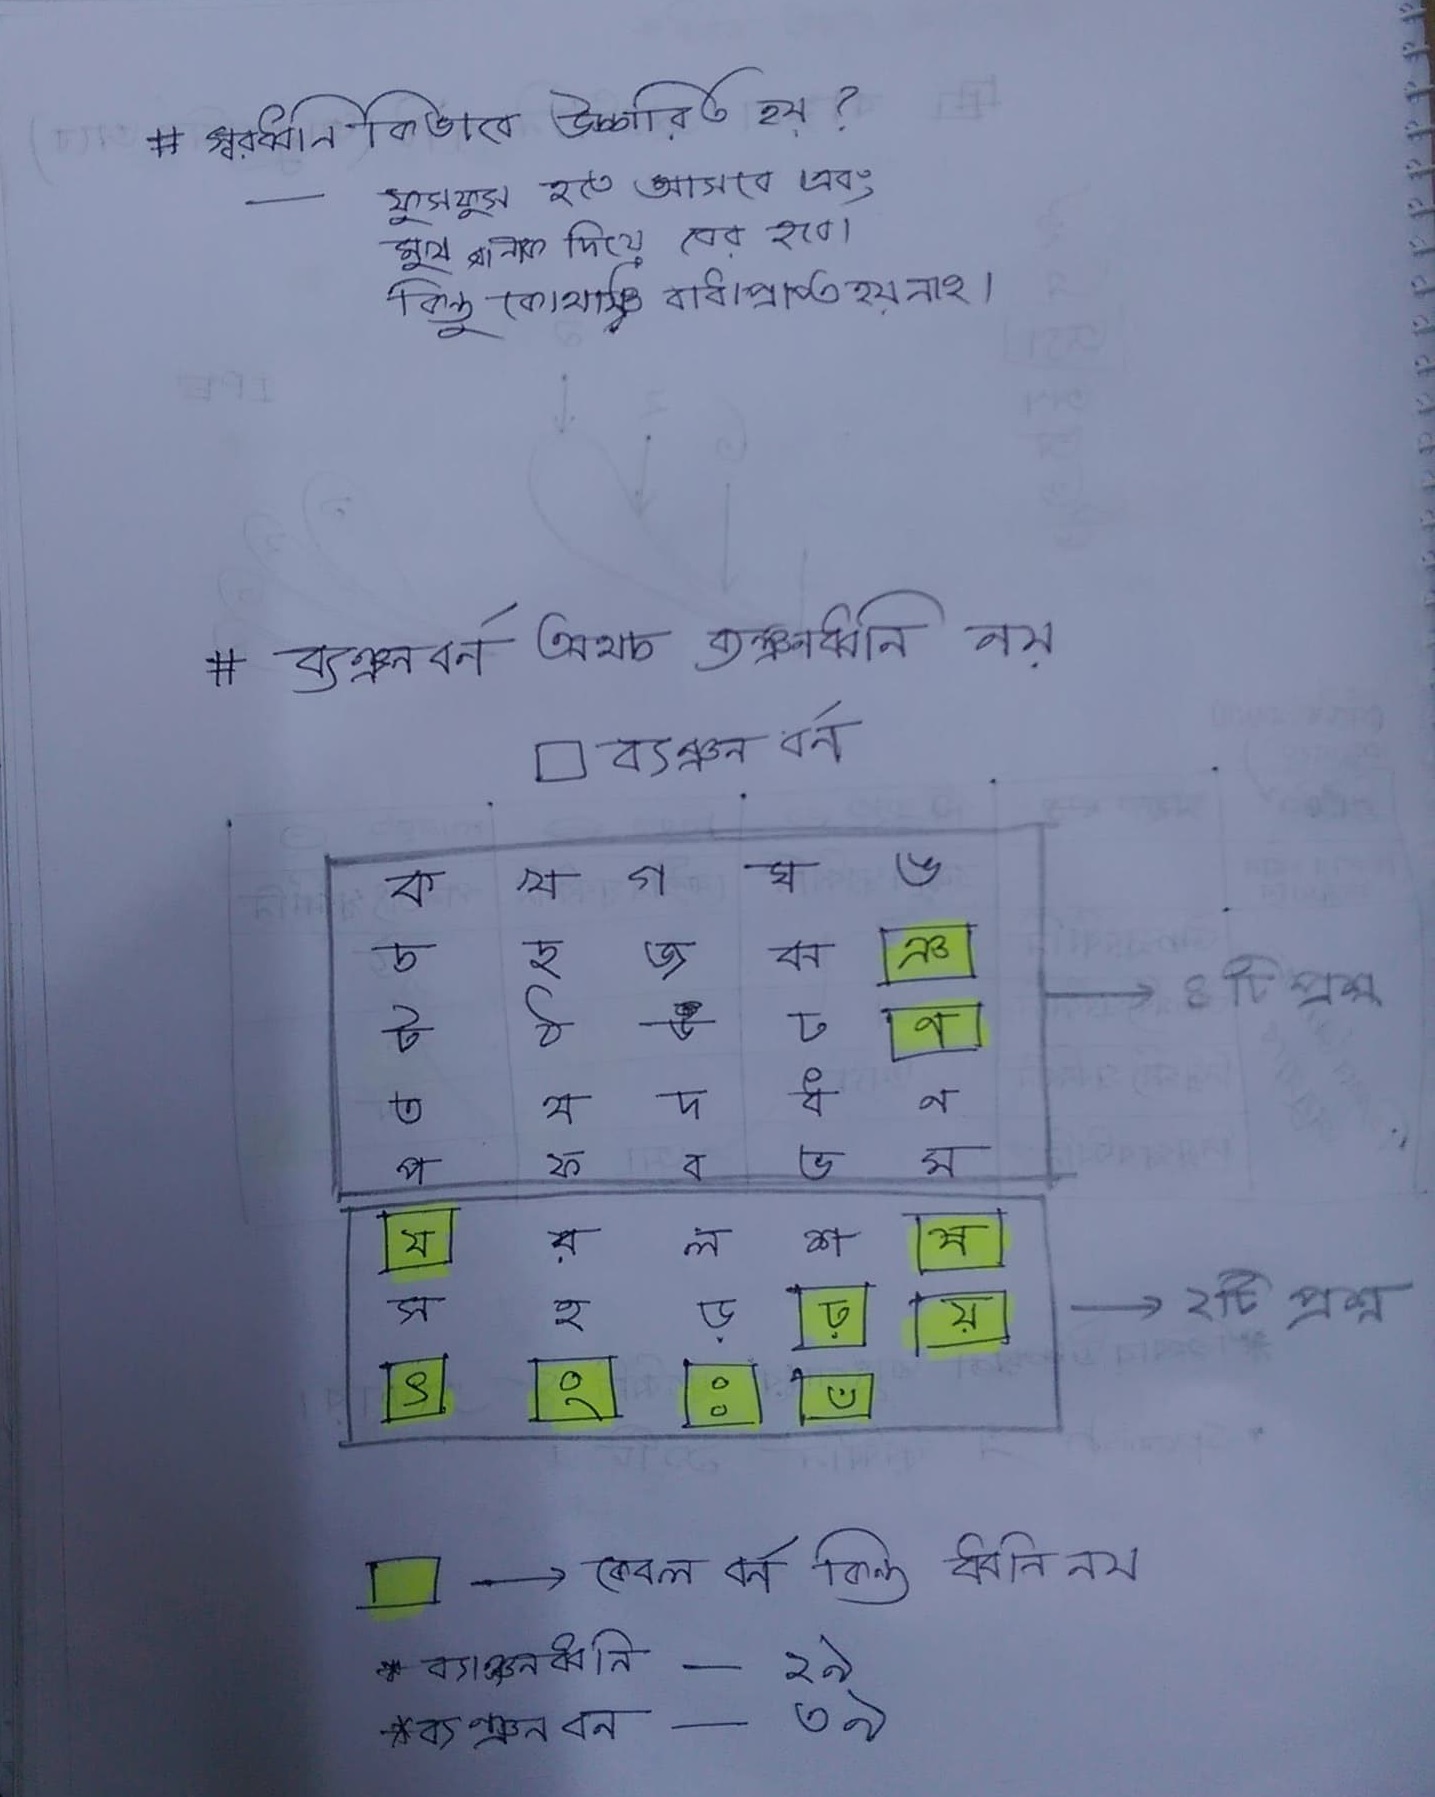 # স্বরধ্বনি কিভাবে উচ্চারিত হয় ?
— ফুসফুস হতে আসবে এবং
মুখ বা নাক দিয়ে বের হবে।
কিন্তু কোথাও বাধাপ্রাপ্ত হয় নাই।
# ব্যঞ্জন বর্ন অথচ ব্যঞ্জনধ্বনি নয়
□ ব্যঞ্জন বর্ন
ক খ গ ঘ ঙ
চ ছ জ ঝ ঞ
ট ঠ ড ঢ ণ → ৪ টি প্রশ্ন
ত থ দ ধ ন
প ফ ব ভ ম
য র ল শ ষ
স হ ড় ঢ় য় → ২টি প্রশ্ন
ৎ ং ঃ ঁ
□ → কেবল বর্ন কিন্তু ধ্বনি নয়
* ব্যাঞ্জনধ্বনি — ২৯
* ব্যঞ্জন বন — ৩৯